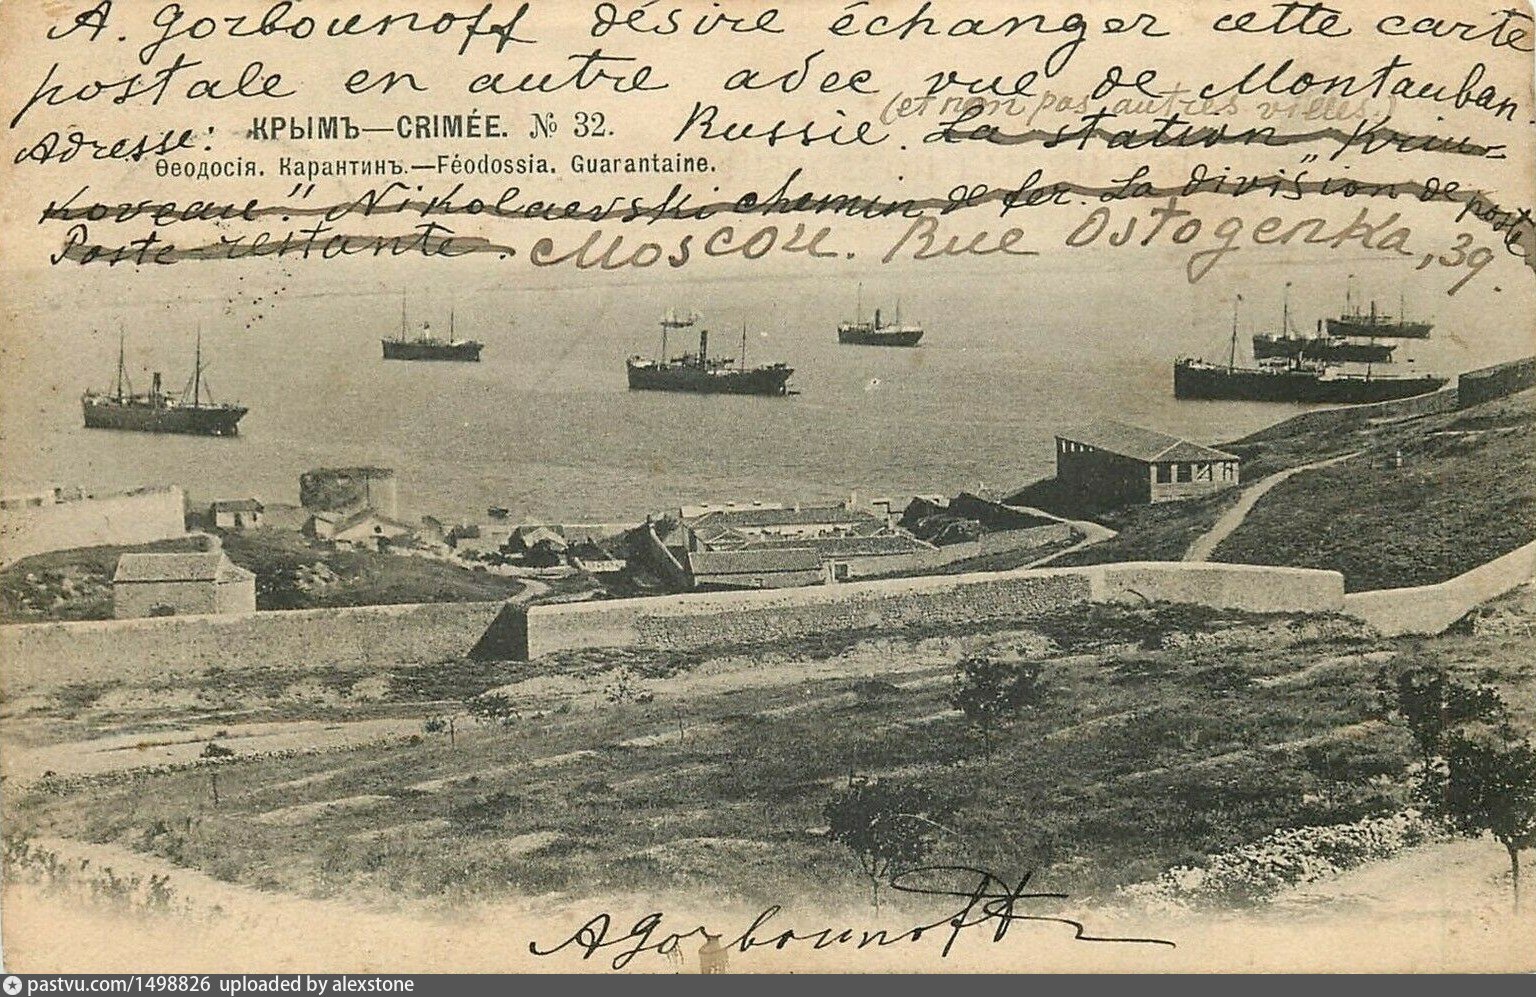 A. Gorbounoff désire échanger cette carte
postale en autre avec vue de Montauban.
(et non pas autres villes.)
Adresse: КРЫМЪ—CRIMÉE. № 32. Russie. La station „Kriu-
Ѳеодосія. Карантинъ.—Féodossia. Guarantaine.
koveau". Nikolaevski chemin de fer. La division de poste
Poste restante. Moscou. Rue Ostogenka, 39.
AGorbounoff
pastvu.com/1498826 uploaded by alexstone